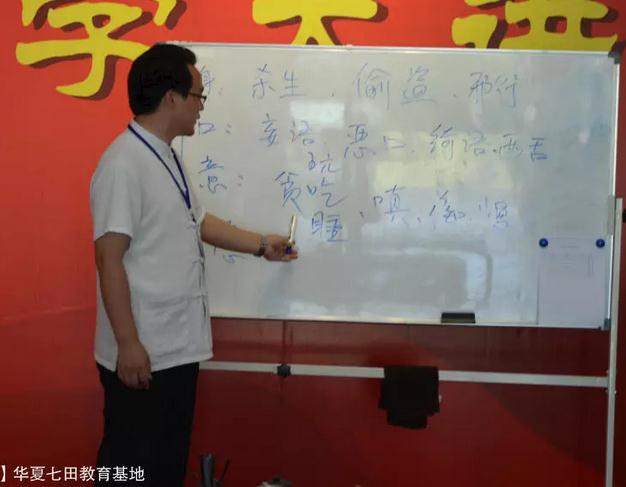 学 大 讲
身：杀生、偷盗、邪行
口：妄语、恶口、绮语、两舌
玩
意：贪吃
睡、嗔、
】华夏七田教育基地